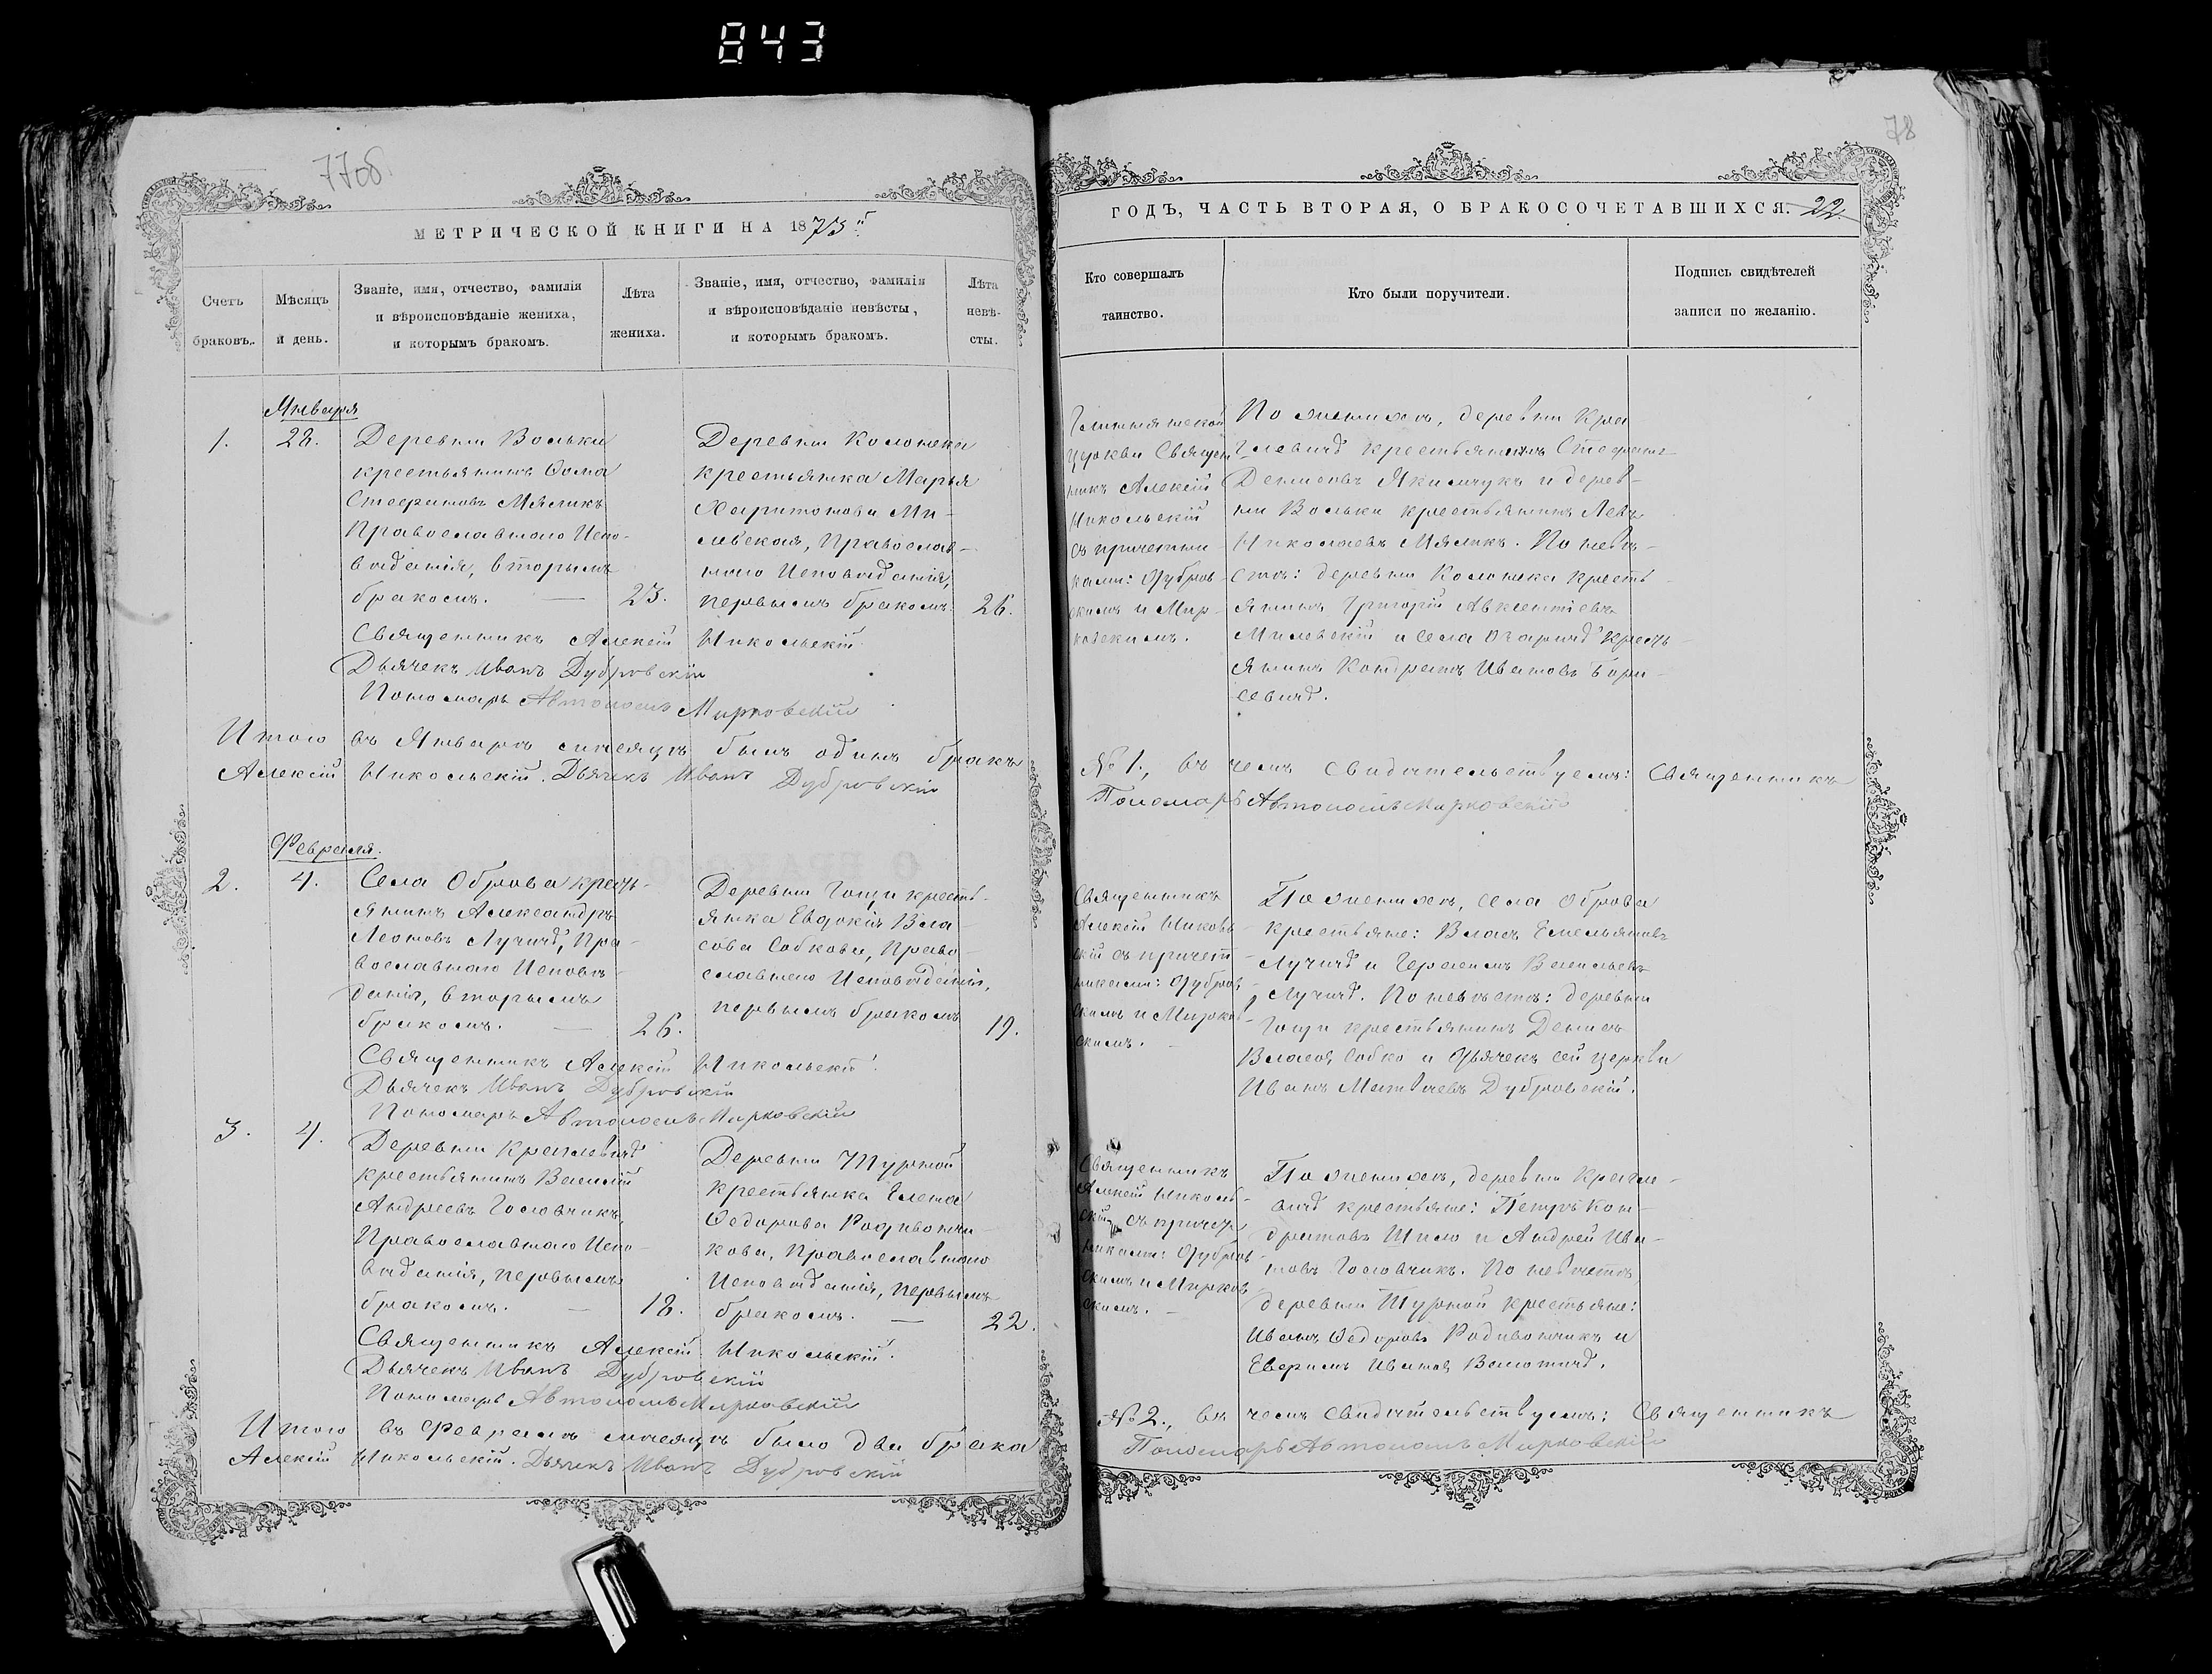 843
77об
78
МЕТРИЧЕСКОЙ КНИГИ НА 1873й
ГОДЪ, ЧАСТЬ ВТОРАЯ, О БРАКОСОЧЕТАВШИХСЯ. 22.
Счетъ
браковъ.
Мѣсяцъ
и день.
Званіе, имя, отчество, фамилія
и вѣроисповѣданіе жениха,
и которымъ бракомъ.
Лѣта
жениха.
Званіе, имя, отчество, фамилія
и вѣроисповѣданіе невѣсты,
и которымъ бракомъ.
Лѣта
невѣ-
сты.
Кто совершалъ
таинство.
Кто были поручители.
Подпись свидѣтелей
записи по желанію.
Января
1.
28.
Деревни Вольки
крестьянинъ Ѳома
Стефановъ Мяликъ
Православнаго Испо-
вѣданія, вторымъ
бракомъ. —
23.
Деревни Колонска
крестьянка Марья
Харитонова Ми-
левская, Православ-
наго Исповѣданія,
первымъ бракомъ.
26.
церкви Священ
никъ Алексій
Никольскій
съ причетни-
ками: Дубров-
скимъ и Мир-
ковскимъ.
По женихѣ, деревни Кра
глевичъ крестьянинъ Стефанъ
Денисовъ Якимчукъ и дерев-
ни Вольки крестьянинъ Левъ
Николаевъ Мяликъ. По невѣ-
стѣ: деревни Колонска кресть-
янинъ Григорій Авксентіевъ
Милевскій и села Огаричъ кресть-
янинъ Кондратъ Ивановъ Бори-
севичъ.
Священникъ Алексій Никольскій
Дьячекъ Иванъ Дубровскій
Пономарь Автономъ Мирковскій
Итого въ Январѣ мѣсяцѣ былъ одинъ бракъ
№ 1., въ чемъ свидѣтельствуемъ: Священникъ
Алексій Никольскій. Дьячекъ Иванъ Дубровскій
Пономарь Автономъ Мирковскій
Февраля.
2.
4.
Села Оброва кресть-
янинъ Александръ
Леоновъ Лучичъ, Пра-
вославнаго Исповѣ-
данія, вторымъ
бракомъ. —
26.
Деревни Гощи кресть-
янка Евдокія Вла-
сова Собкова, Право-
славнаго Исповѣданія,
первымъ бракомъ
19.
Священникъ
Алексій Николь-
скій съ причет-
никами: Дубров-
скимъ и Мирков-
скимъ. —
По женихѣ, села Оброва
крестьяне: Власъ Емельяновъ
Лучичъ и Герасимъ Васильевъ
Лучичъ. По невѣстѣ: деревни
Гощи крестьянинъ Денисъ
Власовъ Собко и Дьячекъ сей церкви
Иванъ Матвѣевъ Дубровскій.
Священникъ Алексій Никольскій.
Дьячекъ Иванъ Дубровскій
Пономарь Автономъ Мирковскій
3.
4.
Деревни Краглевичъ
крестьянинъ Василій
Андреевъ Головчикъ,
Православнаго Испо-
вѣданія, первымъ
бракомъ. —
18.
Деревни Турной
крестьянка Елена
Ѳедорова Родивончи-
кова, Православнаго
Исповѣданія, первымъ
бракомъ. —
22.
Священникъ
Алексій Николь-
скій съ причет
никами: Дубров-
скимъ и Мирков
скимъ. —
По женихѣ, деревни Крагле-
вичъ крестьяне: Петръ Кон-
дратовъ Шило и Андрей Ива-
новъ Головчикъ. По невѣстѣ,
деревни Турной крестьяне:
Иванъ Ѳедоровъ Родивончикъ и
Священникъ Алексій Никольскій.
Дьячекъ Иванъ Дубровскій
Пономарь Автономъ Мирковскій
Итого въ Февралѣ мѣсяцѣ было два брака
№ 2., въ чемъ свидѣтельствуемъ: Священникъ
Алексій Никольскій. Дьячекъ Иванъ Дубровскій
Пономарь Автономъ Мирковскій